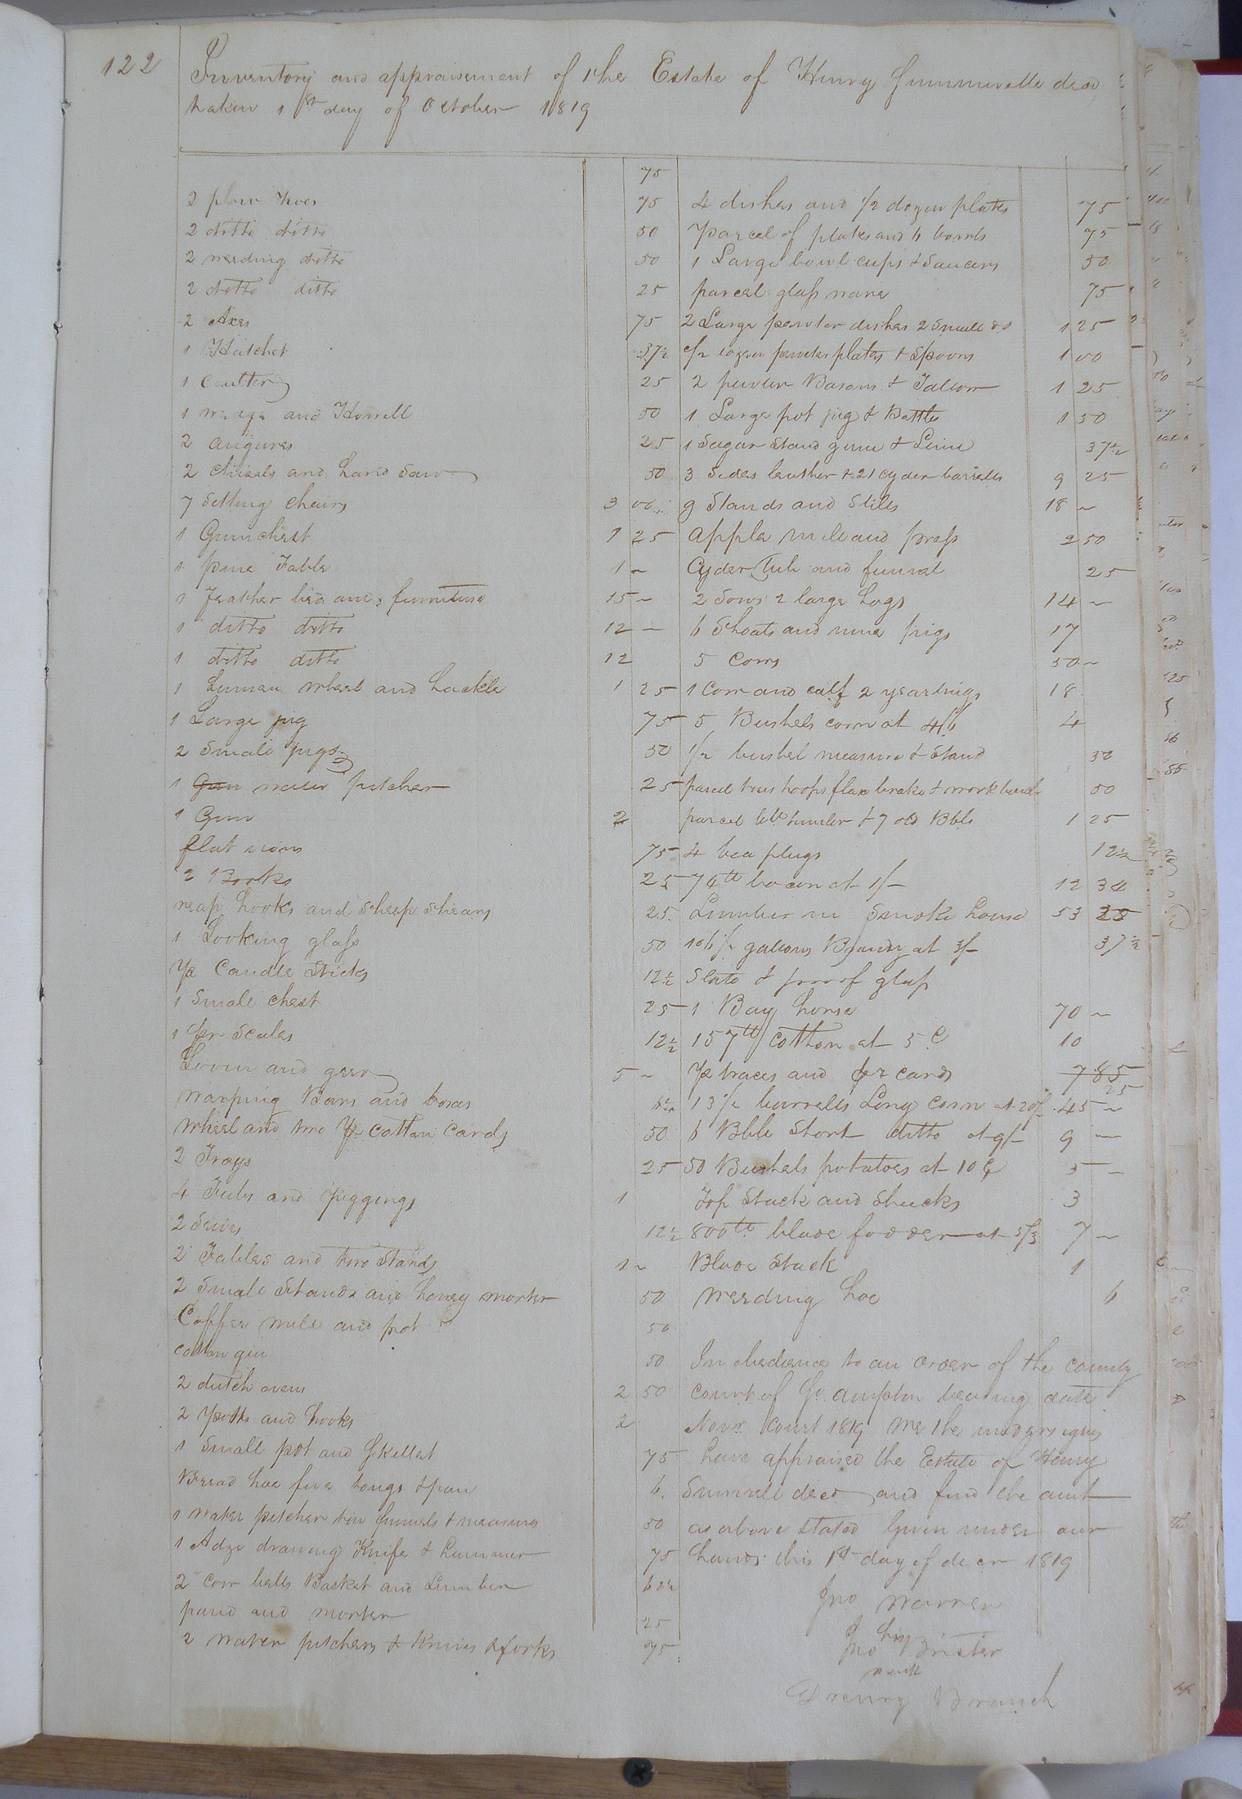 122
Inventory and appraisement of the Estate of Henry Summerelle decd
taken 1st day of October 1819
75
2 plow hoes 75
2 ditto ditto 50
2 weeding ditto 50
2 ditto ditto 25
2 Axes 75
1 Hatchet 37½
1 Coulter 25
1 wedge and 50
2 augures 25
2 Chisels and hand Saw 50
7 Setting Chairs 3 00
1 Gum chest 1 25
1 pine Table 1 ~
1 Feather bed and furniture 15 ~
1 ditto ditto 12 —
1 ditto ditto 12
1 wheel and hackle 1 25
1 Large jug 75
2 Small jugs 50
1 Gun water pitcher 25
1 Gun 2
flat irons 75
2 Books 25
reap hooks and Sheep Shears 25
1 Looking glass 50
Pr Candle Sticks 12½
1 Small chest 25
1 pr Scales 12½
Loom and gear 5 ~
warping Bars and boxes
wheel and two Pr Cotton Cards 50
2 Trays 25
4 Tubs and piggings 1
2 Sives 12½
2 Tables and two Stands 1 ~
2 Small Stands and honey morter 50
Coffee mill and pot 50
Cotton gin 50
2 dutch ovens 2 50
2 potts and hooks 2
1 Small pot and Skellet 75
Bread hoe fire tongs & pan 6
1 water pitcher tin funnels & measures 50
1 Adze drawing Knife & hammer 75
2 Cow bells Basket and Lumber
and morter 25
2 water pitchers & Knives & forks 75
4 dishes and ½ dozen plates 75
Parcel of plates and 6 bowls 75
1 Large bowl cups & Saucers 50
parcel glass ware 75
2 Large pewter dishes 2 Small do 1 25
½ dozen pewter plates & Spoons 1 00
2 pewter Basons & 1 25
1 Large pot jug & Bottle 1 50
1 Sugar Stand 37½
3 Sides leather & 21 Cyder barrells 9 25
9 Stands and Stills 18 ~
apple mill and press 2 50
Cyder Tub and funnel 25
2 Sows 2 large hogs 14 ~
6 Shoats and nine pigs 17
5 Cows 50 ~
1 Cow and calf 2 yearlings 18
5 Bushels corn at 4/6 4
½ bushel measure & Stand 50
parcel hoops flax brake & work bench 50
parcel & 7 old Bbls 1 25
4 plugs 12½
74lb bacon at 1/- 12 34
Lumber in Smoke house 53 25
106½ gallons Brandy at 3/- 37½
Slate & proof glass
1 Bay horse 70 ~
157lb cotton at 5 C 10
Pr traces and pr cards 7 85
25
13½ barrells Long Corn at 20/ 45 ~
6 Bbls Short ditto at 9/- 9 —
50 Bushels potatoes at 10 C 5 ~
Top Stack and Shucks 3
800lb blade fodder at 5/3 7 ~
Blade Stack 1
weeding hoe 6
In obedience to an order of the county
court of bearing date
Novr Court 1819 we the undersigned
have appraised the Estate of Henry
Sumrell decd and find the amt
as above stated Given under our
hands this 1st day of decr 1819
Jno Warren
his
Jno Brister
mark
Drewry Branch